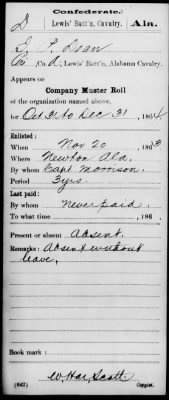 Confederate.
D Lewis' Batt'n, Cavalry. Ala.
P. Dean
Co. d, Lewis' Batt'n, Alabama Cavalry.
Appears on
Company Muster Roll
of the organization named above,
for Oct 31 to Dec 31, 1864.
Enlisted:
When Nov 20, 1863
Where Newton Ala.
By whom Capt Morrison.
Period 3 yrs.
Last paid:
By whom Never paid.
To what time , 186 .
Present or absent Absent.
Remarks: Absent without
leave.
Book mark:
W. Har. Scott
(642) Copyist.